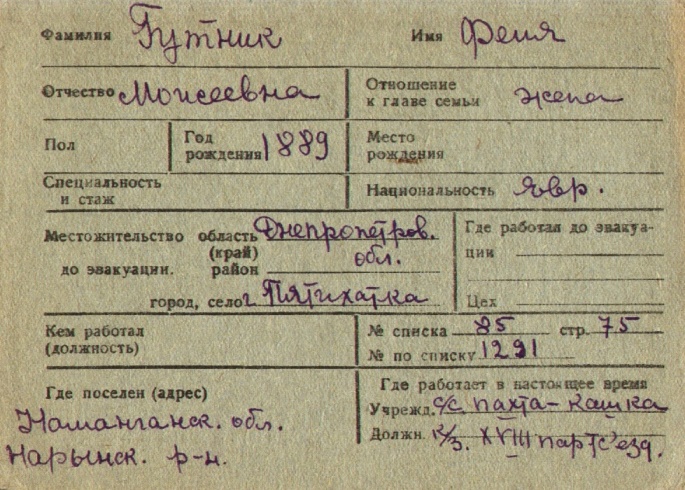 Фамилия Гутник Имя Феня
Отчество Моисеевна Отношение к главе семьи жена
Пол Год рождения 1889 Место рождения
Специальность и стаж Национальность Явр.
Местожительство область (край) Днепропетров. обл. Где работал до эвакуации
до эвакуации. район
город, село г Пятихатка Цех
Кем работал (должность) № списка 85 стр. 75
№ по списку 1291
Где поселен (адрес) Где работает в настоящее время
Наманганск. обл. Учрежд. с/с. пахта-кашка
Нарынск. р-н. Должн. к/з. XVIII партс'езд.